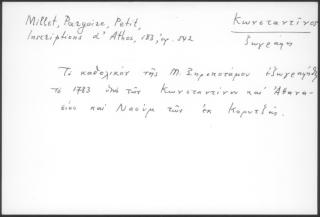 Millet, Pargoire, Petit,
Inscriptions d'Athos, 183, ἀρ. 542
Κωνσταντῖνος
ζωγράφος
Τὸ καθολικὸν τῆς Μ. Ξηροποτάμου ἐζωγραφήθη
τὸ 1783 ὑπὸ τῶν Κωνσταντίνου καὶ Ἀθανα-
σίου καὶ Ναοὺμ τῶν ἐκ Κορυτζᾶς.